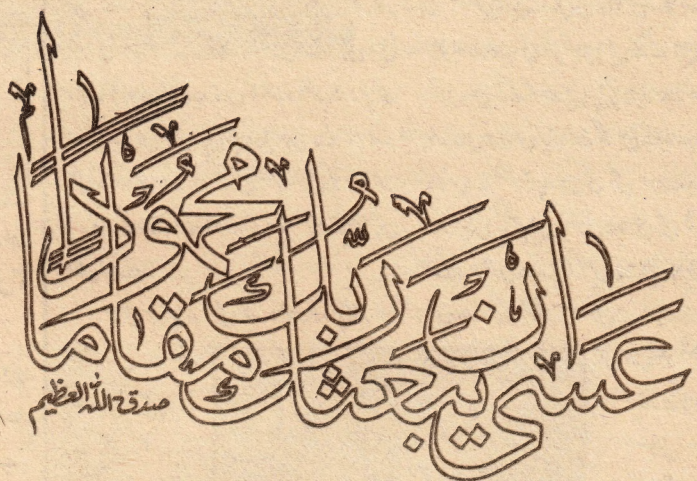 عَسَى أَنْ يَبْعَثَكَ رَبُّكَ مَقَامًا مَحْمُودًا
صدق الله العظيم